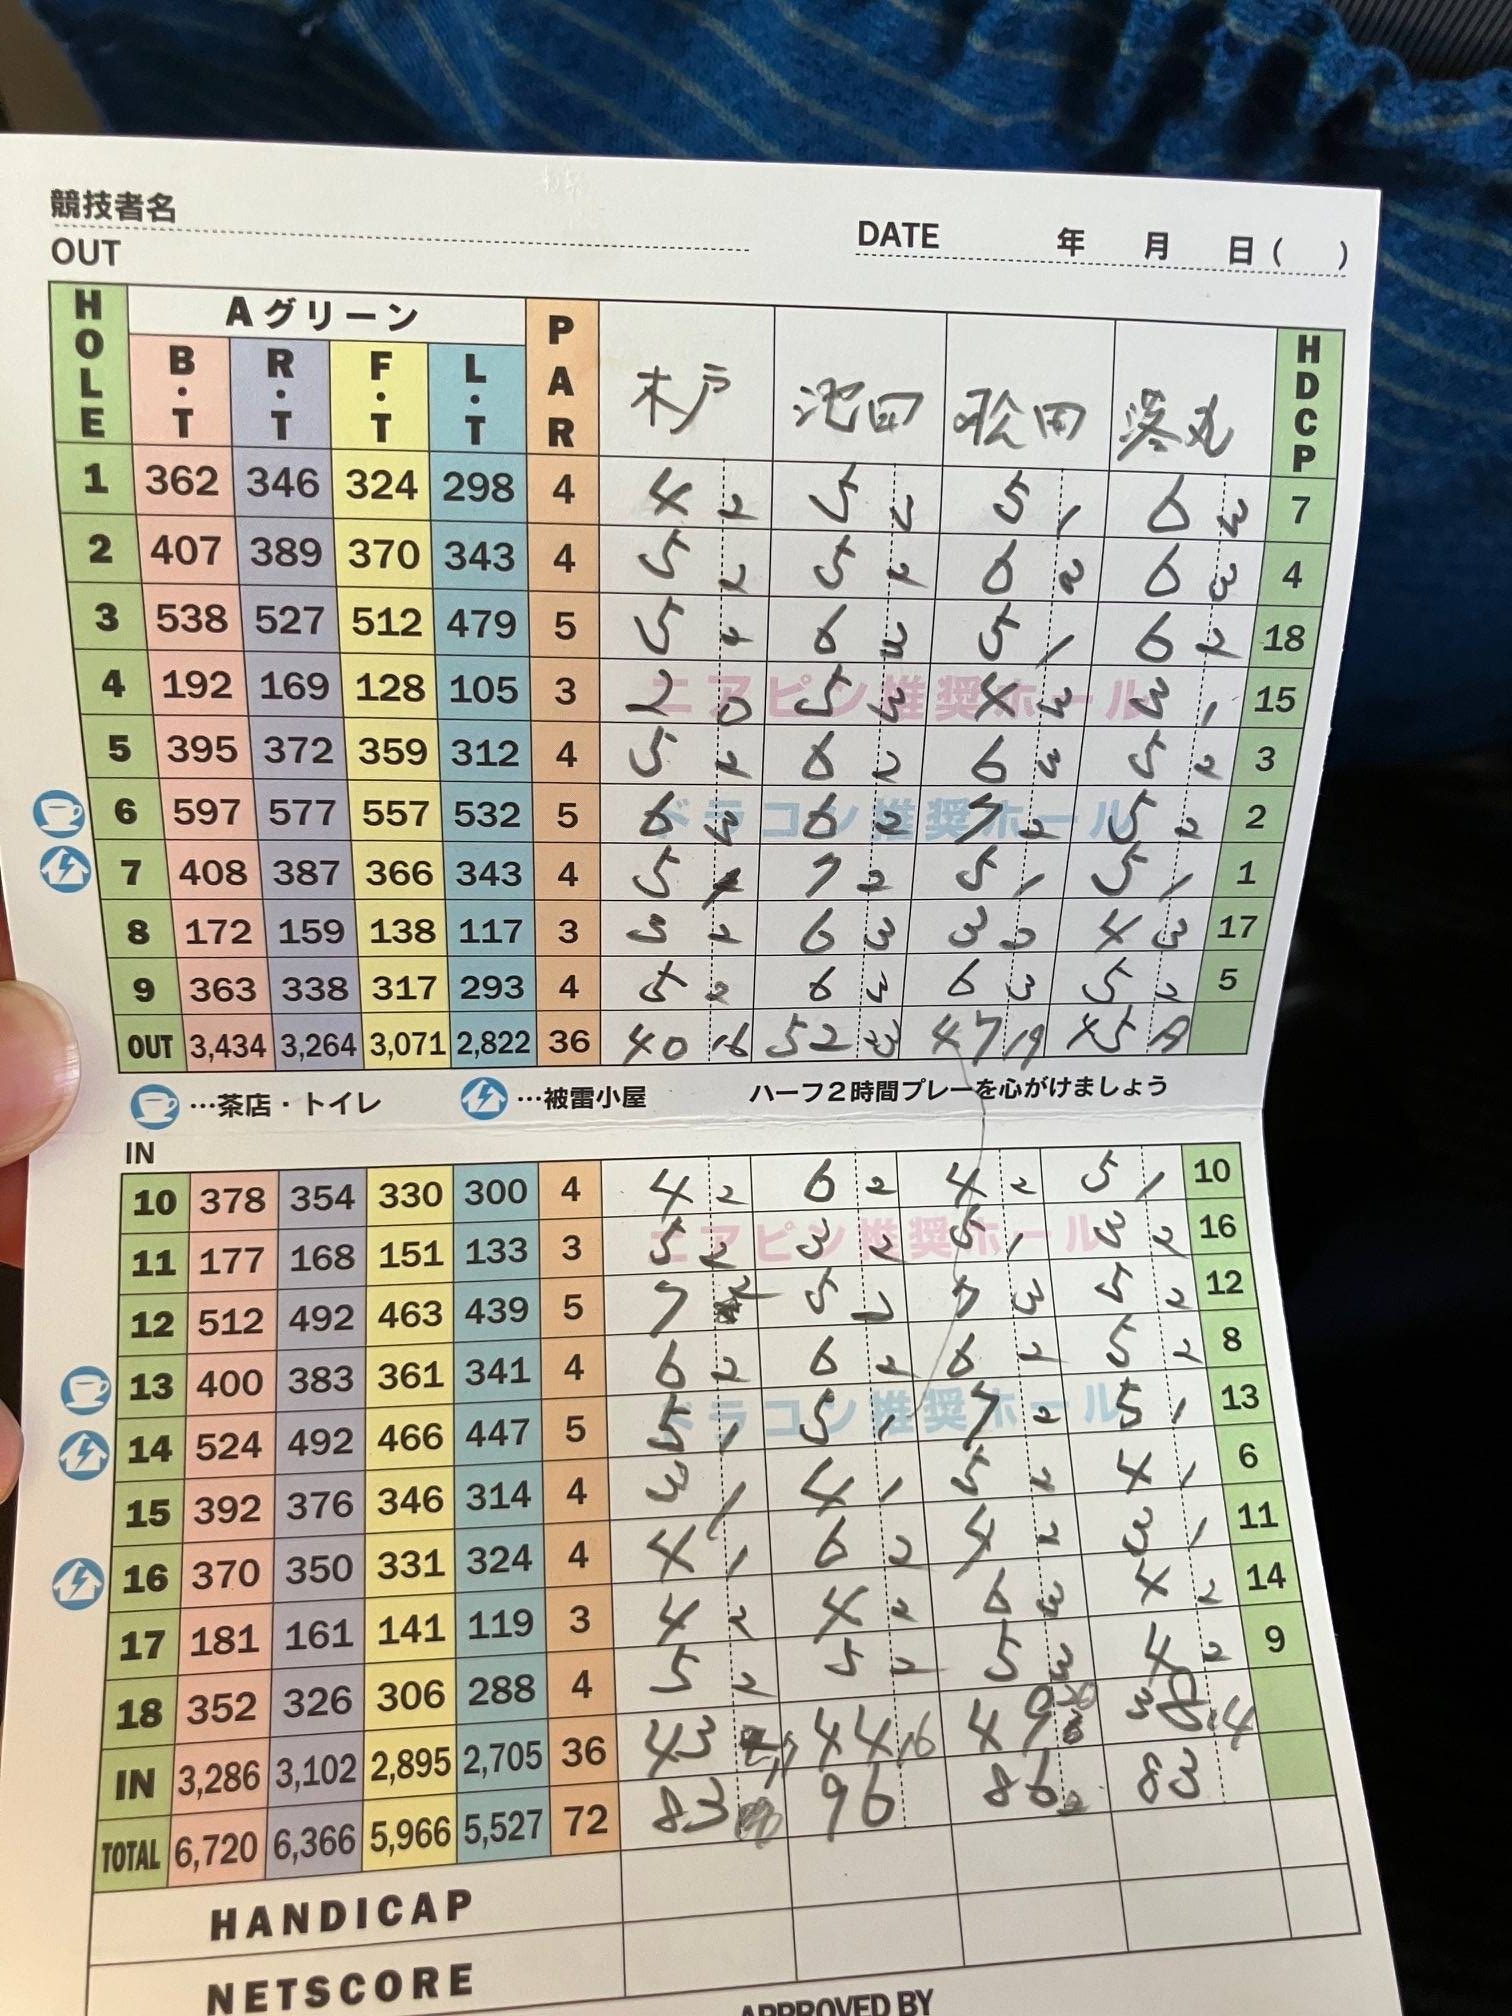 競技者名
DATE 年 月 日( )
OUT
HOLE Aグリーン PAR 木戸 池田 松田 落丸 HDCP
B・T R・T F・T L・T
1 362 346 324 298 4 4 2 5 2 5 1 6 3 7
2 407 389 370 343 4 5 2 5 2 6 2 6 3 4
3 538 527 512 479 5 5 6 3 5 1 6 2 18
4 192 169 128 105 3 2 0 5 3 4 3 3 1 15
ニアピン推奨ホール
5 395 372 359 312 4 5 2 6 2 6 3 5 2 3
6 597 577 557 532 5 6 3 6 2 7 2 5 2 2
ドラコン推奨ホール
7 408 387 366 343 4 5 7 2 5 1 5 1 1
8 172 159 138 117 3 3 2 6 3 3 2 4 3 17
9 363 338 317 293 4 5 2 6 3 6 3 5 2 5
OUT 3,434 3,264 3,071 2,822 36 40 16 52 47 19 45
…茶店・トイレ …被雷小屋 ハーフ2時間プレーを心がけましょう
IN
10 378 354 330 300 4 4 2 6 2 4 2 5 1 10
11 177 168 151 133 3 5 2 3 2 5 1 3 2 16
ニアピン推奨ホール
12 512 492 463 439 5 7 2 5 2 7 3 5 2 12
13 400 383 361 341 4 6 2 6 2 6 2 5 2 8
14 524 492 466 447 5 5 1 5 1 7 2 5 1 13
ドラコン推奨ホール
15 392 376 346 314 4 3 1 4 1 5 2 4 1 6
16 370 350 331 324 4 4 1 6 2 4 2 3 1 11
17 181 161 141 119 3 4 2 4 2 6 3 4 2 14
18 352 326 306 288 4 5 2 5 2 5 3 4 2 9
IN 3,286 3,102 2,895 2,705 36 43 44 16 49 38 14
TOTAL 6,720 6,366 5,966 5,527 72 83 96 86 83
HANDICAP
NETSCORE
APPROVED BY